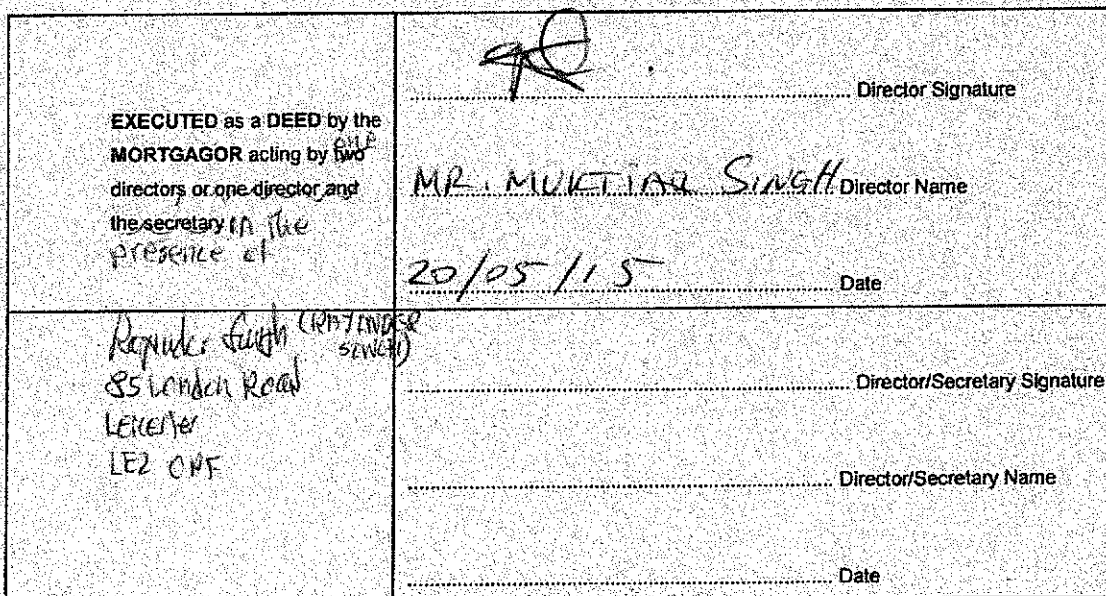 EXECUTED as a DEED by the
MORTGAGOR acting by two one
directors or one director and
the secretary in the
presence of
Director Signature
MR. MUKTIAR SINGH Director Name
20/05/15 Date
Singh
85 London Road
Leicester
LE2
Director/Secretary Signature
Director/Secretary Name
Date